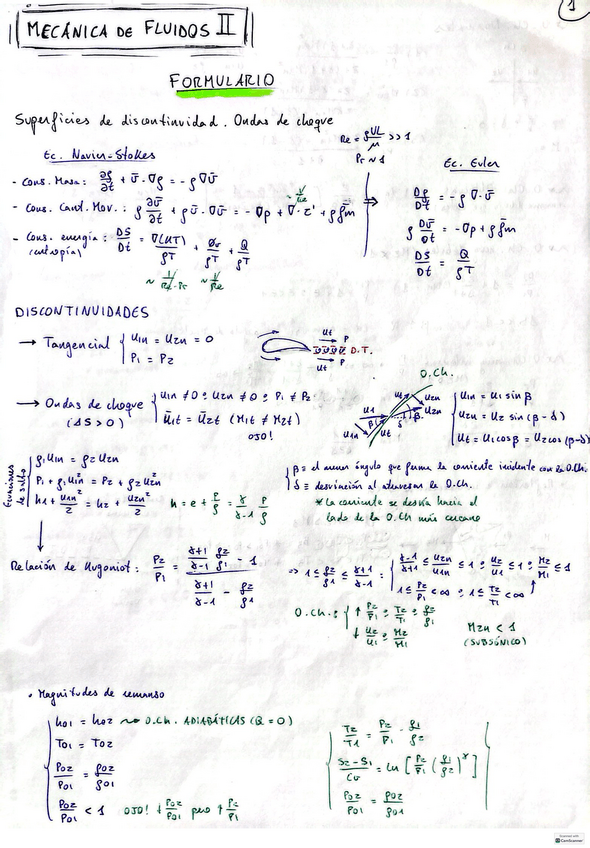 1
MECÁNICA DE FLUIDOS II
FORMULARIO
Superficies de discontinuidad. Ondas de choque
Re = ρUL/μ >> 1
Pr ~ 1
Ec. Navier-Stokes
Ec. Euler
- Cons. Masa: ∂ρ/∂t + ū·∇ρ = -ρ∇ū
Dρ/Dt = -ρ∇·ū
- Cons. Cant. Mov.: ρ ∂ū/∂t + ρū·∇ū = -∇p + ∇·τ' + ρf̄m
~ 1/Re
⇒
ρ Dū/Dt = -∇p + ρf̄m
- Cons. energía: DS/Dt = ∇(k∇T)/ρT + Φv/ρT + Q/ρT
(entropía)
DS/Dt = Q/ρT
~ 1/Re·Pr ~ 1/Re
DISCONTINUIDADES
→ Tangencial { u1n = u2n = 0
P1 = P2
ut P
D.T.
ut P
→ Ondas de choque { u1n ≠ 0; u2n ≠ 0; P1 ≠ P2
(ΔS > 0) ū1t = ū2t (M1t ≠ M2t)
OJO!
O.Ch.
u1 β ut u2n u2 δ u1n ut
u1n = u1 sin β
u2n = u2 sin(β - δ)
ut = u1 cos β = u2 cos(β - δ)
Ecuaciones de salto
ρ1 u1n = ρ2 u2n
P1 + ρ1 u1n² = P2 + ρ2 u2n²
h1 + u1n²/2 = h2 + u2n²/2 h = e + P/ρ = γ/(γ-1) P/ρ
β = el menor ángulo que forma la corriente incidente con la O.Ch.
δ = desviación al atravesar la O.Ch.
* La corriente se desvía hacia el
lado de la O.Ch más cercano
Relación de Hugoniot: P2/P1 = ((γ+1)/(γ-1) ρ2/ρ1 - 1) / ((γ+1)/(γ-1) - ρ2/ρ1)
⇒ 1 ≤ ρ2/ρ1 ≤ (γ+1)/(γ-1) : { (γ-1)/(γ+1) ≤ u2n/u1n ≤ 1; u2/u1 ≤ 1; M2/M1 ≤ 1
1 ≤ P2/P1 < ∞; 1 ≤ T2/T1 < ∞
O.Ch.: { ↑ P2/P1; T2/T1; ρ2/ρ1
↓ u2/u1; M2/M1
M2n < 1
(SUBSÓNICO)
• Magnitudes de remanso
h01 = h02 ~> O.Ch. ADIABÁTICAS (Q = 0)
T01 = T02
P02/P01 = ρ02/ρ01
P02/P01 < 1 OJO! ↓ P02/P01 pero ↑ P2/P1
T2/T1 = P2/P1 · ρ1/ρ2
S2-S1/Cv = ln [P2/P1 (ρ1/ρ2)^γ]
P02/P01 = ρ02/ρ01
Scanned with
CamScanner